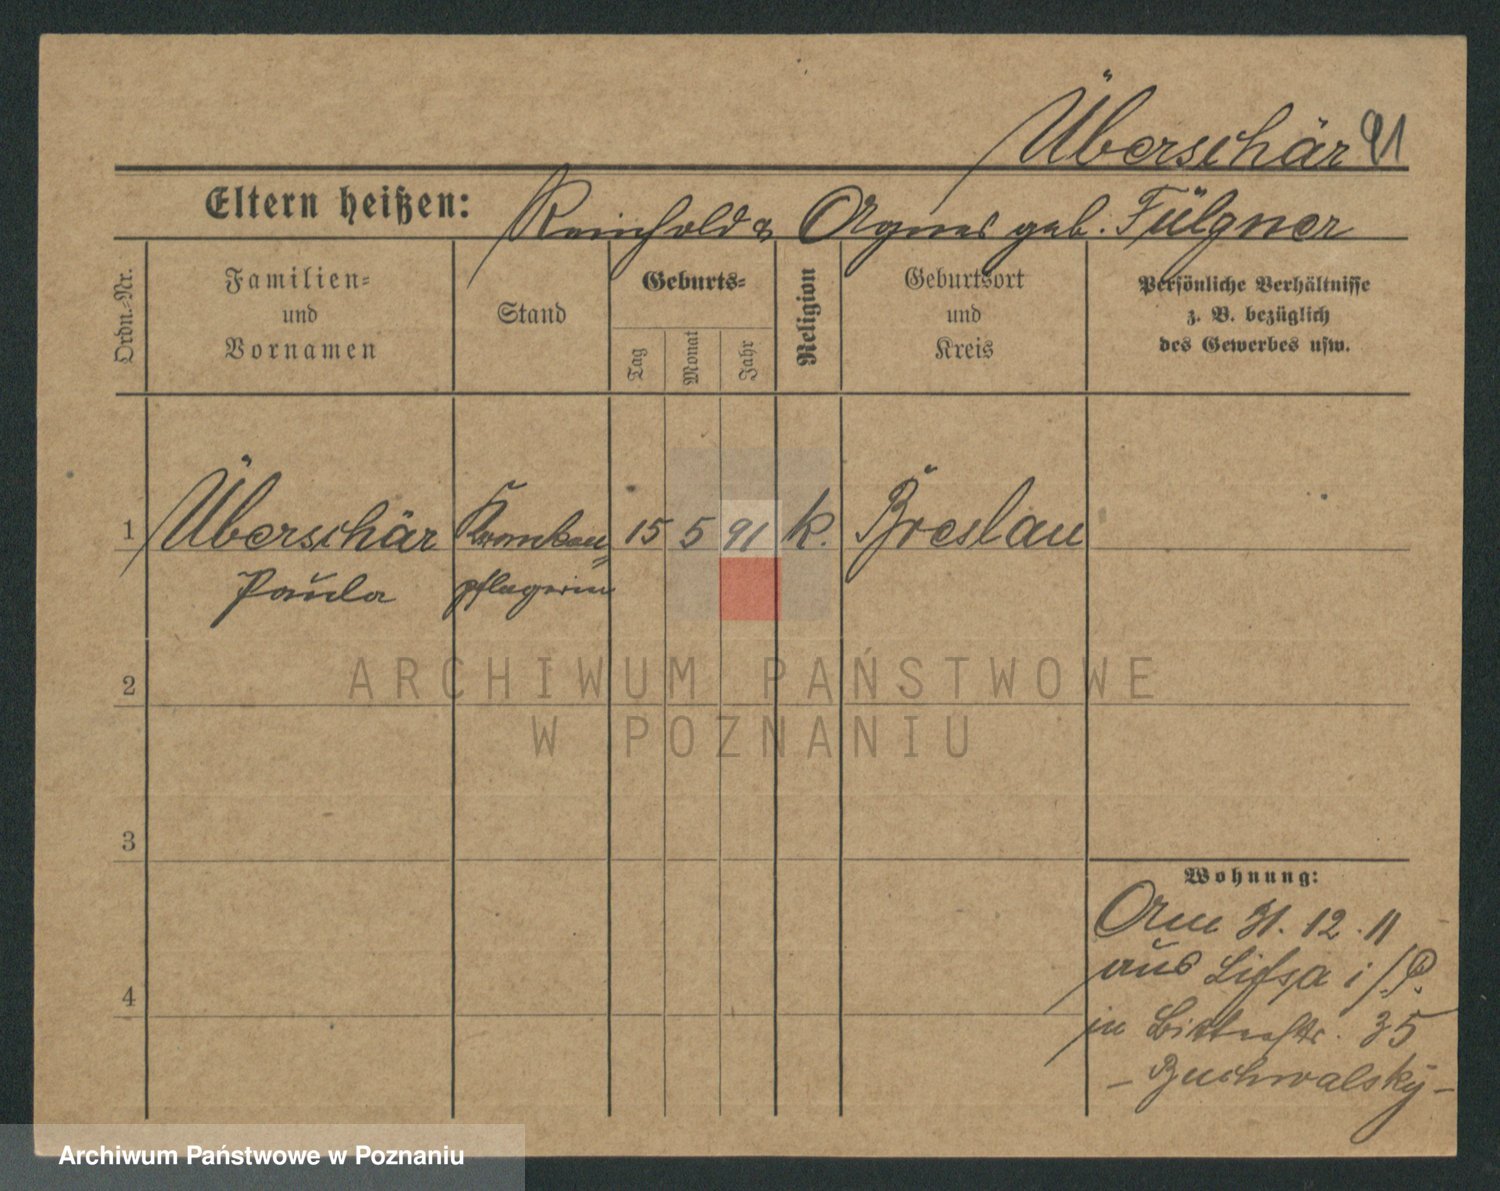 Überschär 91
Eltern heißen: Reinhold & Agnes geb. Fülgner
Ordn.-Nr.
Familien-
und
Vornamen
Stand
Geburts-
Tag
Monat
Jahr
Religion
Geburtsort
und
Kreis
Persönliche Verhältnisse
z. B. bezüglich
des Gewerbes usw.
1 Überschär Kranken 15 5 91 k. Breslau
Paula pflegerin
2
ARCHIWUM PAŃSTWOWE
W POZNANIU
3
Wohnung:
Am 31.12.11
aus Lissa i/P.
in 35
– Buchwalsky –
4
Archiwum Państwowe w Poznaniu